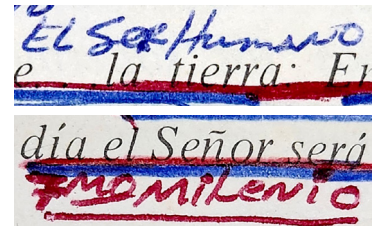 EL SER HUMANO
e...la tierra: En
día el Señor será
7MO MILENIO